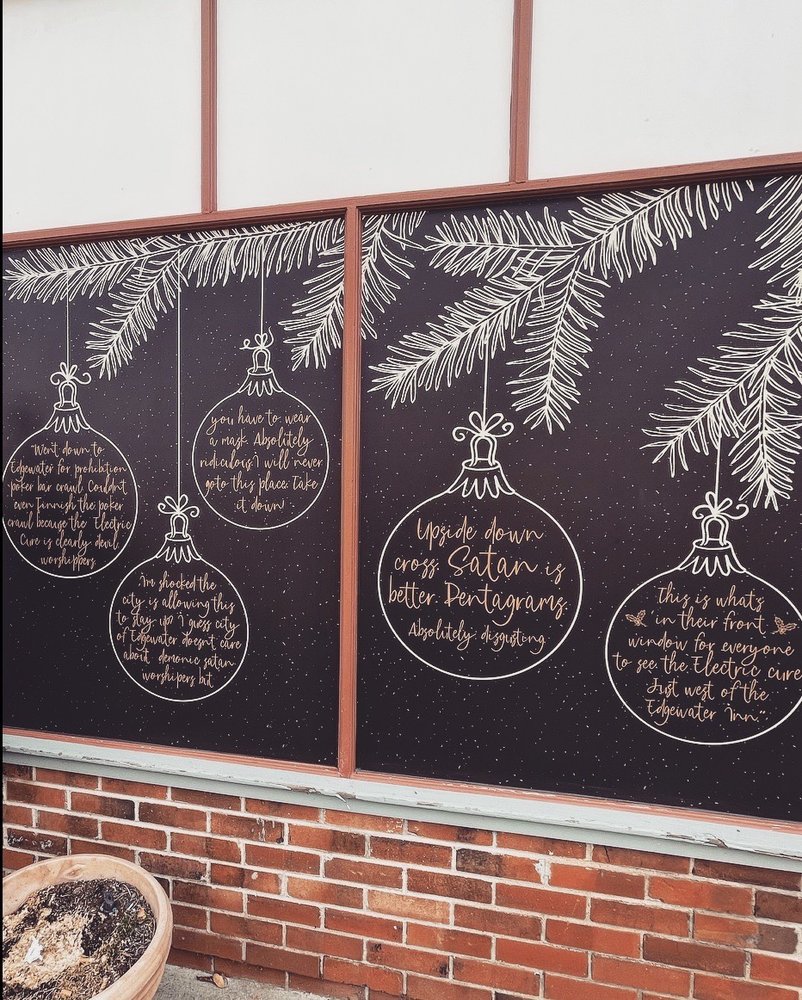 Went down to
Edgewater for prohibition
poker bar crawl. Couldnt
even finnish the poker
crawl because the Electric
Cure is clearly devil
worshippers.
I'm shocked the
city is allowing this
to stay up! I guess city
of Edgewater doesn't care
about demonic satan
worshipers but
you have to wear
a mask. Absolutely
ridiculous. I will never
goto this place. Take
it down!
Upside down
cross. Satan is
better. Pentagrams.
Absolutely disgusting.
This is whats
in their front
window for everyone
to see. the Electric cure
Just west of the
Edgewater Inn."